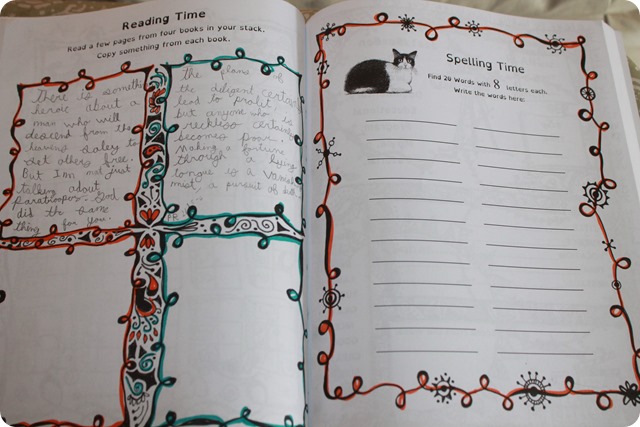 Reading Time
Read a few pages from four books in your stack.
Copy something from each book.
There is somethi
heroic about a
man who will
descend from the
heavens to
set others free.
But I'm not just
talking about
paratroopers God
did the same
thing for you.
The plans of
the diligent certain
lead to profit
but anyone who
reckless certainly
becomes poor.
Making a fortune
through a lying
tongue is a
mist a pursuit of
PR
Spelling Time
Find 20 Words with 8 letters each.
Write the words here: